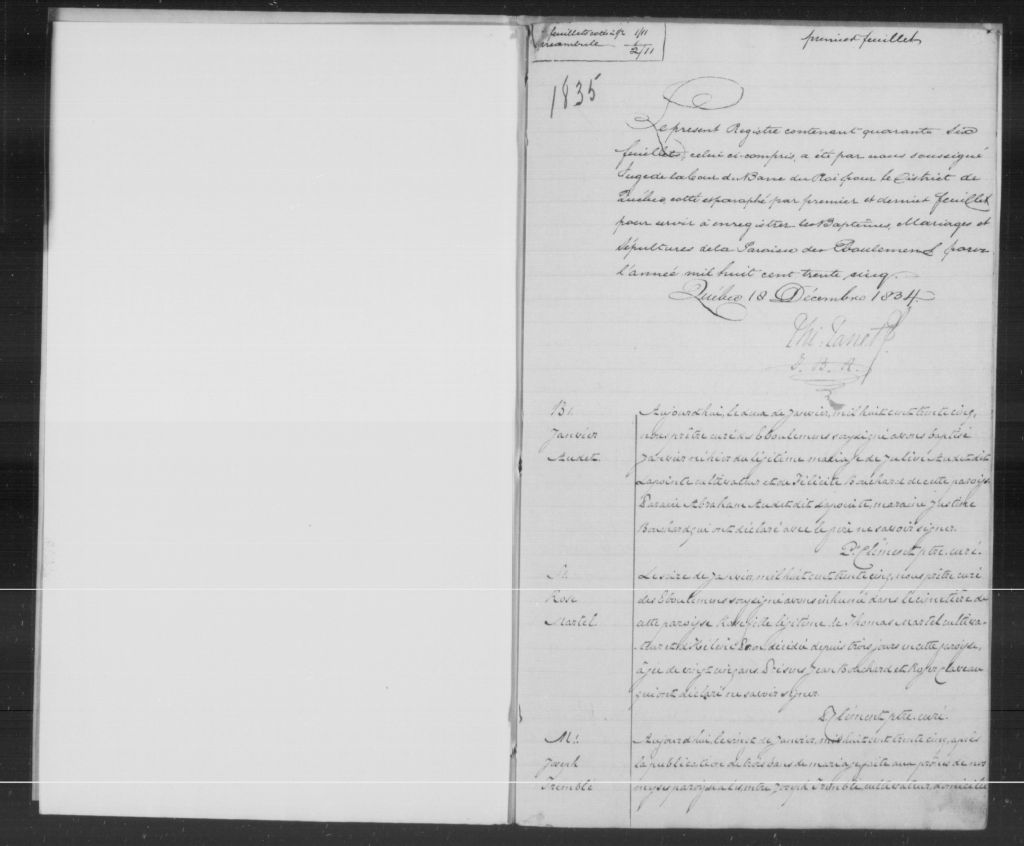 feuillets cotés 1/11
préambule 2/11
premier feuillet
1835
Le présent Registre contenant quarante six
feuillets, celui ci compris, a été par nous soussigné
Juge de la Cour du Banc du Roi pour le District de
Québec cotté et paraphé par premier et dernier feuillet
pour servir à enregistrer les Baptêmes, Mariages et
Sépultures de la Paroisse des Eboulemens pour
l'année mil huit cent trente cinq.
Québec 18 Décembre 1834.
J. B. R.
B1.
Janvier
Audet.
Aujourd'hui, le deux de Janvier, mil huit cent trente cinq,
nous prêtre curé des Eboulemens soussigné avons baptisé
Janvier né hier du légitime mariage de Audet dit
Lapointe cultivateur et de Félicité Bouchard de cette paroisse
Parain Abraham Audet dit Lapointe, maraine Justine
Bouchard qui ont déclaré avec le père ne savoir signer.
Clément ptre. curé.
Rose
Martel
Le seize de Janvier, mil huit cent trente cinq, nous prêtre curé
des Eboulemens soussigné avons inhumé dans le cimetière de
cette paroisse Rose fille légitime de Thomas Martel cultiva-
-teur et de décédée depuis trois jours en cette paroisse,
âgée de vingt cinq ans. Présens Jean Bouchard et Roger Claveau
qui ont déclaré ne savoir signer
Clément ptre. curé.
M1.
Joseph
Tremblé
Aujourd'hui, le vingt de Janvier, mil huit cent trente cinq, après
la publication de trois bans de mariage faite aux prônes de nos
messes paroissiales entre Joseph Tremblé cultivateur domicilié